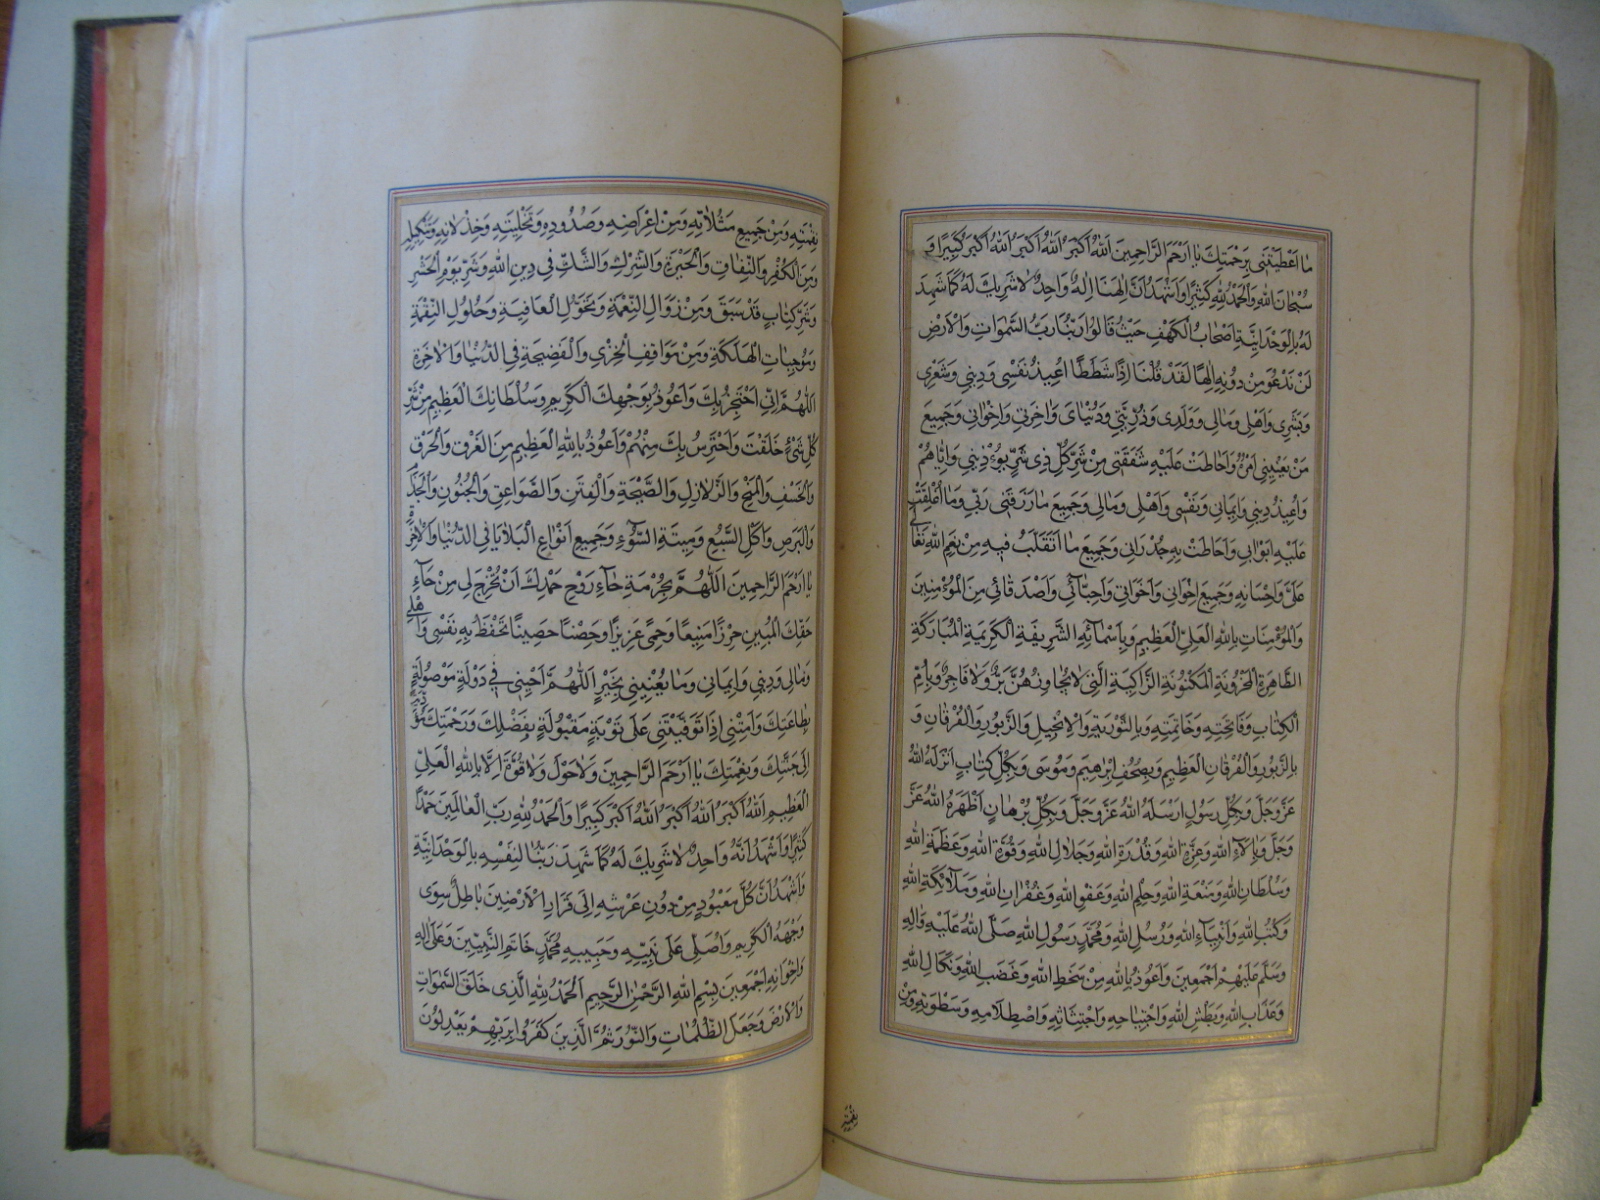 ما اعطيتني برحمتك يا ارحم الراحمين الله اكبر الله اكبر الله اكبر كبيرا و
سبحان الله والحمد لله كثيرا واشهد ان الهنا اله واحد لا شريك له كما شهد
له بالوحدانية اصحاب الكهف حيث قالوا ربنا رب السموات والارض
لن ندعو من دونه الها لقد قلنا اذا شططا اعيذ نفسي وديني وشعري
وبشري واهلي ومالي وولدي وذريتي ودنياي واخرتي واخواني وجميع
من يعنيني امره واحاطت عليه شفقتي من شر كل ذي شر يؤذيني واياهم
واعيذ ديني وايماني ونفسي واهلي ومالي وجميع ما رزقني ربي وما اغلقت
عليه ابوابي واحاطت به جدراني وجميع ما اتقلب فيه من نعم الله تعالى
علي واحسانه وجميع اخواني واخواتي واحبائي واصدقائي من المؤمنين
والمؤمنات بالله العلي العظيم وباسمائه الشريفة الكريمة المباركة
الطاهرة المخزونة المكنونة الزاكية التي لا يجاوزهن بر ولا فاجر وبام
الكتاب وفاتحته وخاتمته وبالتورية والانجيل والزبور والفرقان و
بالزبور والفرقان العظيم وبصحف ابراهيم وموسى وبكل كتاب انزله الله
عز وجل وبكل رسول ارسله الله عز وجل وبكل برهان اظهره الله عز
وجل وبالاء الله وعزة الله وقدرة الله وجلال الله وقوة الله وعظمة الله
وسلطان الله ومنعة الله وحلم الله وعفو الله وغفران الله وملائكة الله
وكتب الله وانبياء الله ورسل الله ومحمد رسول الله صلى الله عليه واله
وسلم عليهم اجمعين واعوذ بالله من سخط الله وغضب الله ونكال الله
وعذاب الله وبطش الله واجتياحه واجتثاثه واصطلامه وسطوته ومن
نقمته
نقمته ومن جميع مثلاته ومن اعراضه وصدوده وتخليته وخذلانه وتنكيله
ومن الكفر والنفاق والحيرة والشرك والشك في دين الله وشر يوم الحشر
وشر كتاب قد سبق ومن زوال النعمة وتحول العافية وحلول النقمة
وموجبات الهلكة ومن مواقف الخزي والفضيحة في الدنيا والاخرة
اللهم اني احتجر بك واعوذ بوجهك الكريم وسلطانك العظيم من شر
كل شئ خلقت واحترس بك منهم واعوذ بالله العظيم من الغرق والحرق
والخسف والمسخ والزلازل والصيحة والفتن والصواعق والجنون والجذام
والبرص واكل السبع وميتة السوء وجميع انواع البلايا في الدنيا والاخرة
يا ارحم الراحمين اللهم بحرمة حاء روح حمدك ان تخرج لي من حاء
حقك المبين حرزا منيعا وحمى عزيزا وحصنا حصينا تحفظ به نفسي واهلي
ومالي وديني وايماني وما يعنيني بخير اللهم احيني في دولة موصولة
بطاعتك وامتني اذا توفيتني على توبة مقبولة بفضلك ورحمتك تؤديني
الى جنتك ونعمتك يا ارحم الراحمين ولا حول ولا قوة الا بالله العلي
العظيم الله اكبر الله اكبر الله اكبر كبيرا والحمد لله رب العالمين حمدا
كثيرا واشهد انه واحد لا شريك له كما شهد ربنا لنفسه بالوحدانية
واشهد ان كل معبود من دون عرشه الى قرار الارضين باطل سوى
وجهه الكريم واصلي على نبيه وحبيبه محمد خاتم النبيين وعلى اله
واخوانه اجمعين بسم الله الرحمن الرحيم الحمد لله الذي خلق السموات
والارض وجعل الظلمات والنور ثم الذين كفروا بربهم يعدلون